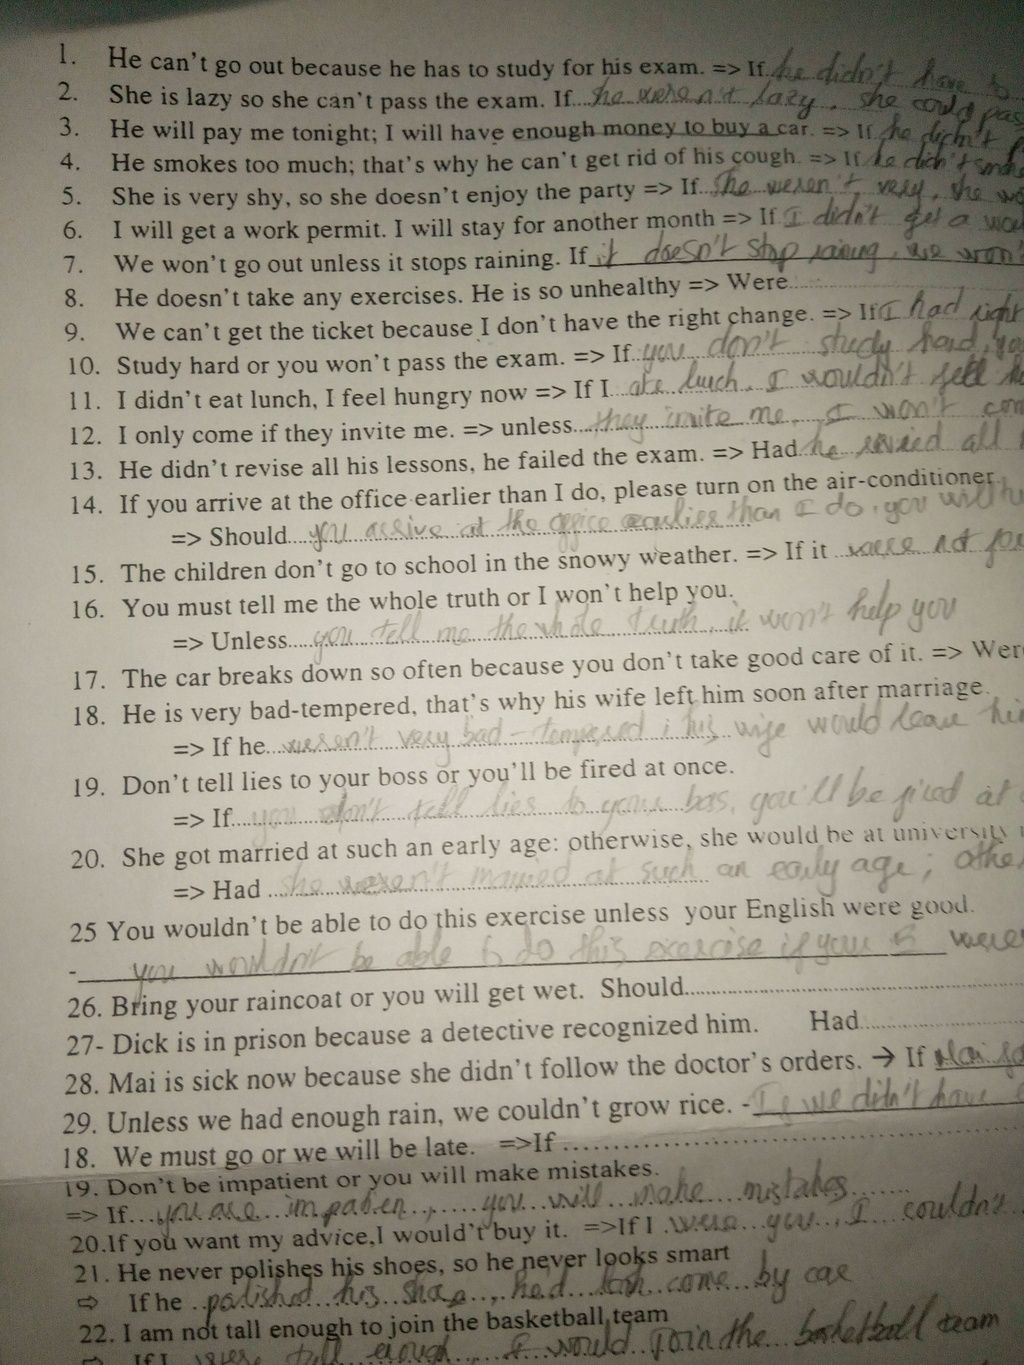 1. He can't go out because he has to study for his exam. => If he didn't have to
2. She is lazy so she can't pass the exam. If she weren't lazy, she could pas
3. He will pay me tonight; I will have enough money to buy a car. => If he didn't
4. He smokes too much; that's why he can't get rid of his cough. => If he didn't smok
5. She is very shy, so she doesn't enjoy the party => If She weren't very, she wo
6. I will get a work permit. I will stay for another month => If I didn't get a wor
7. We won't go out unless it stops raining. If it doesn't stop raining, we won't
8. He doesn't take any exercises. He is so unhealthy => Were
9. We can't get the ticket because I don't have the right change. => If I had right
10. Study hard or you won't pass the exam. => If you don't study hard, yo
11. I didn't eat lunch, I feel hungry now => If I ate lunch, I wouldn't fell
12. I only come if they invite me. => unless they invite me, I won't com
13. He didn't revise all his lessons, he failed the exam. => Had he revied all
14. If you arrive at the office earlier than I do, please turn on the air-conditioner.
=> Should you arrive at the office earlier than I do, you will
15. The children don't go to school in the snowy weather. => If it were not
16. You must tell me the whole truth or I won't help you.
=> Unless you tell me the whole truth, it won't help you
17. The car breaks down so often because you don't take good care of it. => Wer
18. He is very bad-tempered, that's why his wife left him soon after marriage.
=> If he weren't very bad-tempered, his wife would leave him
19. Don't tell lies to your boss or you'll be fired at once.
=> If you don't tell lies to your bos, you'll be fired at
20. She got married at such an early age: otherwise, she would be at university
=> Had she weren't married at such an early age; othe
25 You wouldn't be able to do this exercise unless your English were good.
- you wouldn't be able to do this exercise if your were
26. Bring your raincoat or you will get wet. Should
27- Dick is in prison because a detective recognized him. Had
28. Mai is sick now because she didn't follow the doctor's orders. → If Mai
29. Unless we had enough rain, we couldn't grow rice. - If we didn't have
18. We must go or we will be late. =>If
19. Don't be impatient or you will make mistakes.
=> If you are impatien, you will make mistakes
20.If you want my advice,I would't buy it. =>If I were you, I couldn't
21. He never polishes his shoes, so he never looks smart
⇨ If he polished his come by car
22. I am not tall enough to join the basketball team
⇨ If I were tall enough I would join the basketball team